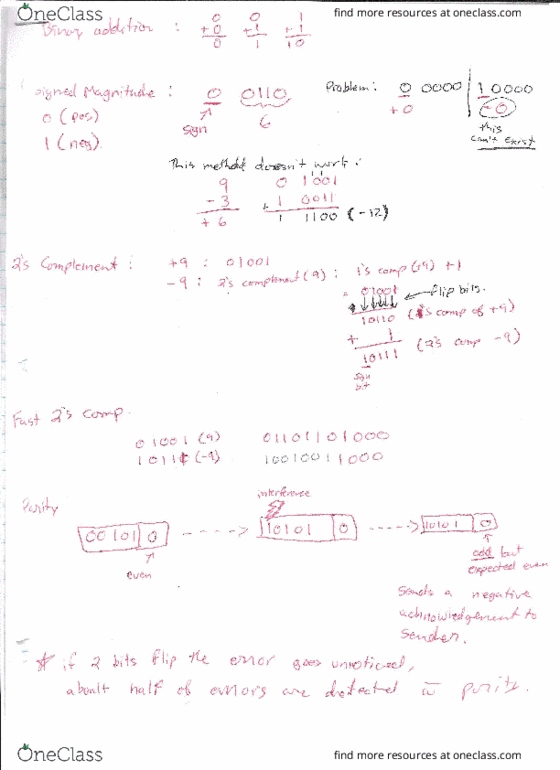 OneClass
find more resources at oneclass.com
Binary addition : 0 0 1
+0 +1 +1
0 1 10
Signed Magnitude : 0 0110 Problem: 0 0000 | 1 0000
0 (pos) sign 6 +0 -0
1 (neg) this can't exist
This method doesn't work:
9 0 1001
- 3 + 1 0011
+ 6 1 1100 (-12)
2's Complement : +9 : 01001
-9 : 2's complement (9) : 1's comp (+9) +1
01001 flip bits.
10110 (1's comp of +9)
+ 1
10111 (2's comp -9)
sign bit
Fast 2's comp.
01001 (9) 01101101000
10111 (-9) 10010011000
Parity
interference
00101 0 ----> 10101 0 ----> 10101 0
even
odd but expected even
Sends a negative
acknowledgement to
sender.
* if 2 bits flip the error goes unnoticed,
about half of errors are detected w parity.
OneClass
find more resources at oneclass.com